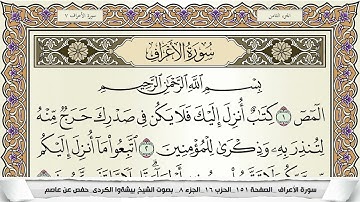 الجزء الثامن
سورة الأعراف ٧
سُورَةُ الأَعْرَافِ
بِسْمِ اللَّهِ الرَّحْمَٰنِ الرَّحِيمِ
الٓمٓصٓ ١ كِتَٰبٌ أُنزِلَ إِلَيْكَ فَلَا يَكُن فِي صَدْرِكَ حَرَجٌ مِّنْهُ
لِتُنذِرَ بِهِۦ وَذِكْرَىٰ لِلْمُؤْمِنِينَ ٢ ٱتَّبِعُوا۟ مَآ أُنزِلَ إِلَيْكُم
سورة الأعراف_الصفحة ١٥١_الحزب ١٦_الجزء ٨_ بصوت الشيخ بيشةوا الكردي_حفص عن عاصم